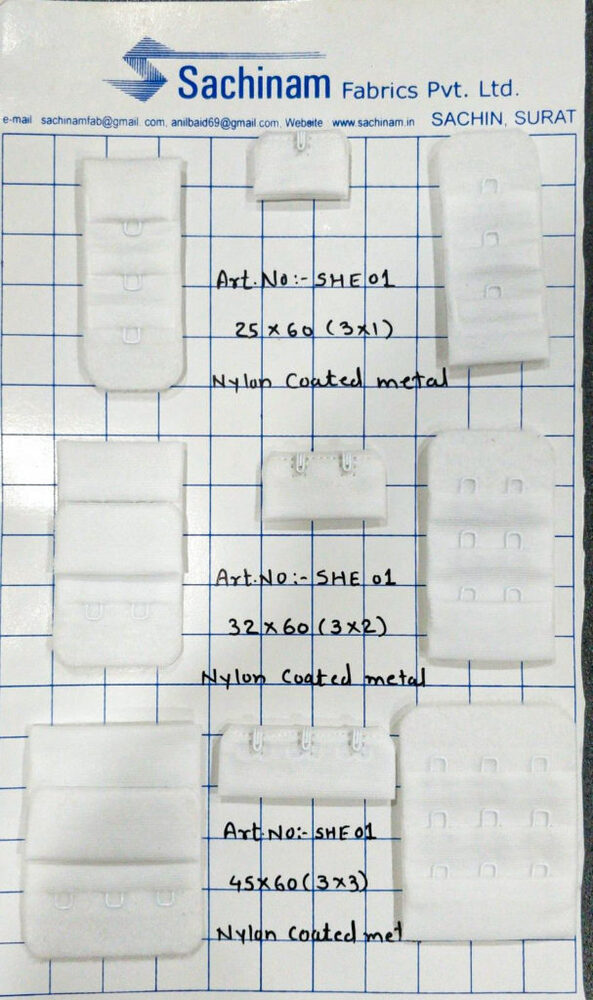 Sachinam Fabrics Pvt. Ltd.
e-mail sachinamfab@gmail. com, anilbaid69@gmail.com, Website www.sachinam.in SACHIN, SURAT
Art.No:- SHE 01
25 x 60 (3x1)
Nylon Coated metal
Art.No:- SHE 01
32 x 60 (3x2)
Nylon Coated metal
Art.No:- SHE 01
45x60 (3x3)
Nylon Coated met